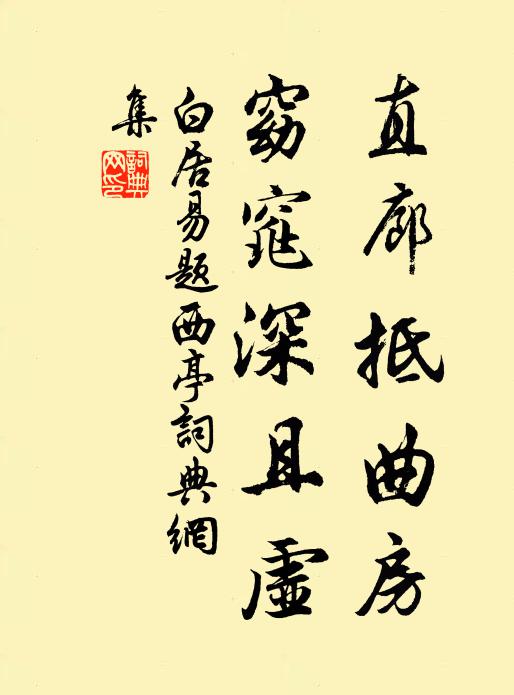 直廊抵曲房
窈窕深且虛
白居易题西亭詞典網
集
詞典
网印